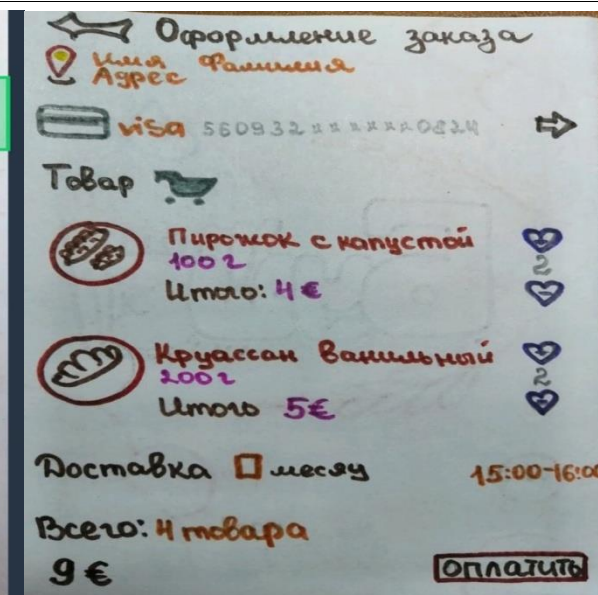 Оформление заказа
Имя Фамилия
Адрес
visa 560932******0824
Товар
Пирожок с капустой
100 г
Итого: 4 €
2
Круассан ванильный
200 г
Итого 5€
2
Доставка месяц 15:00-16:00
Всего: 4 товара
9 €
оплатить